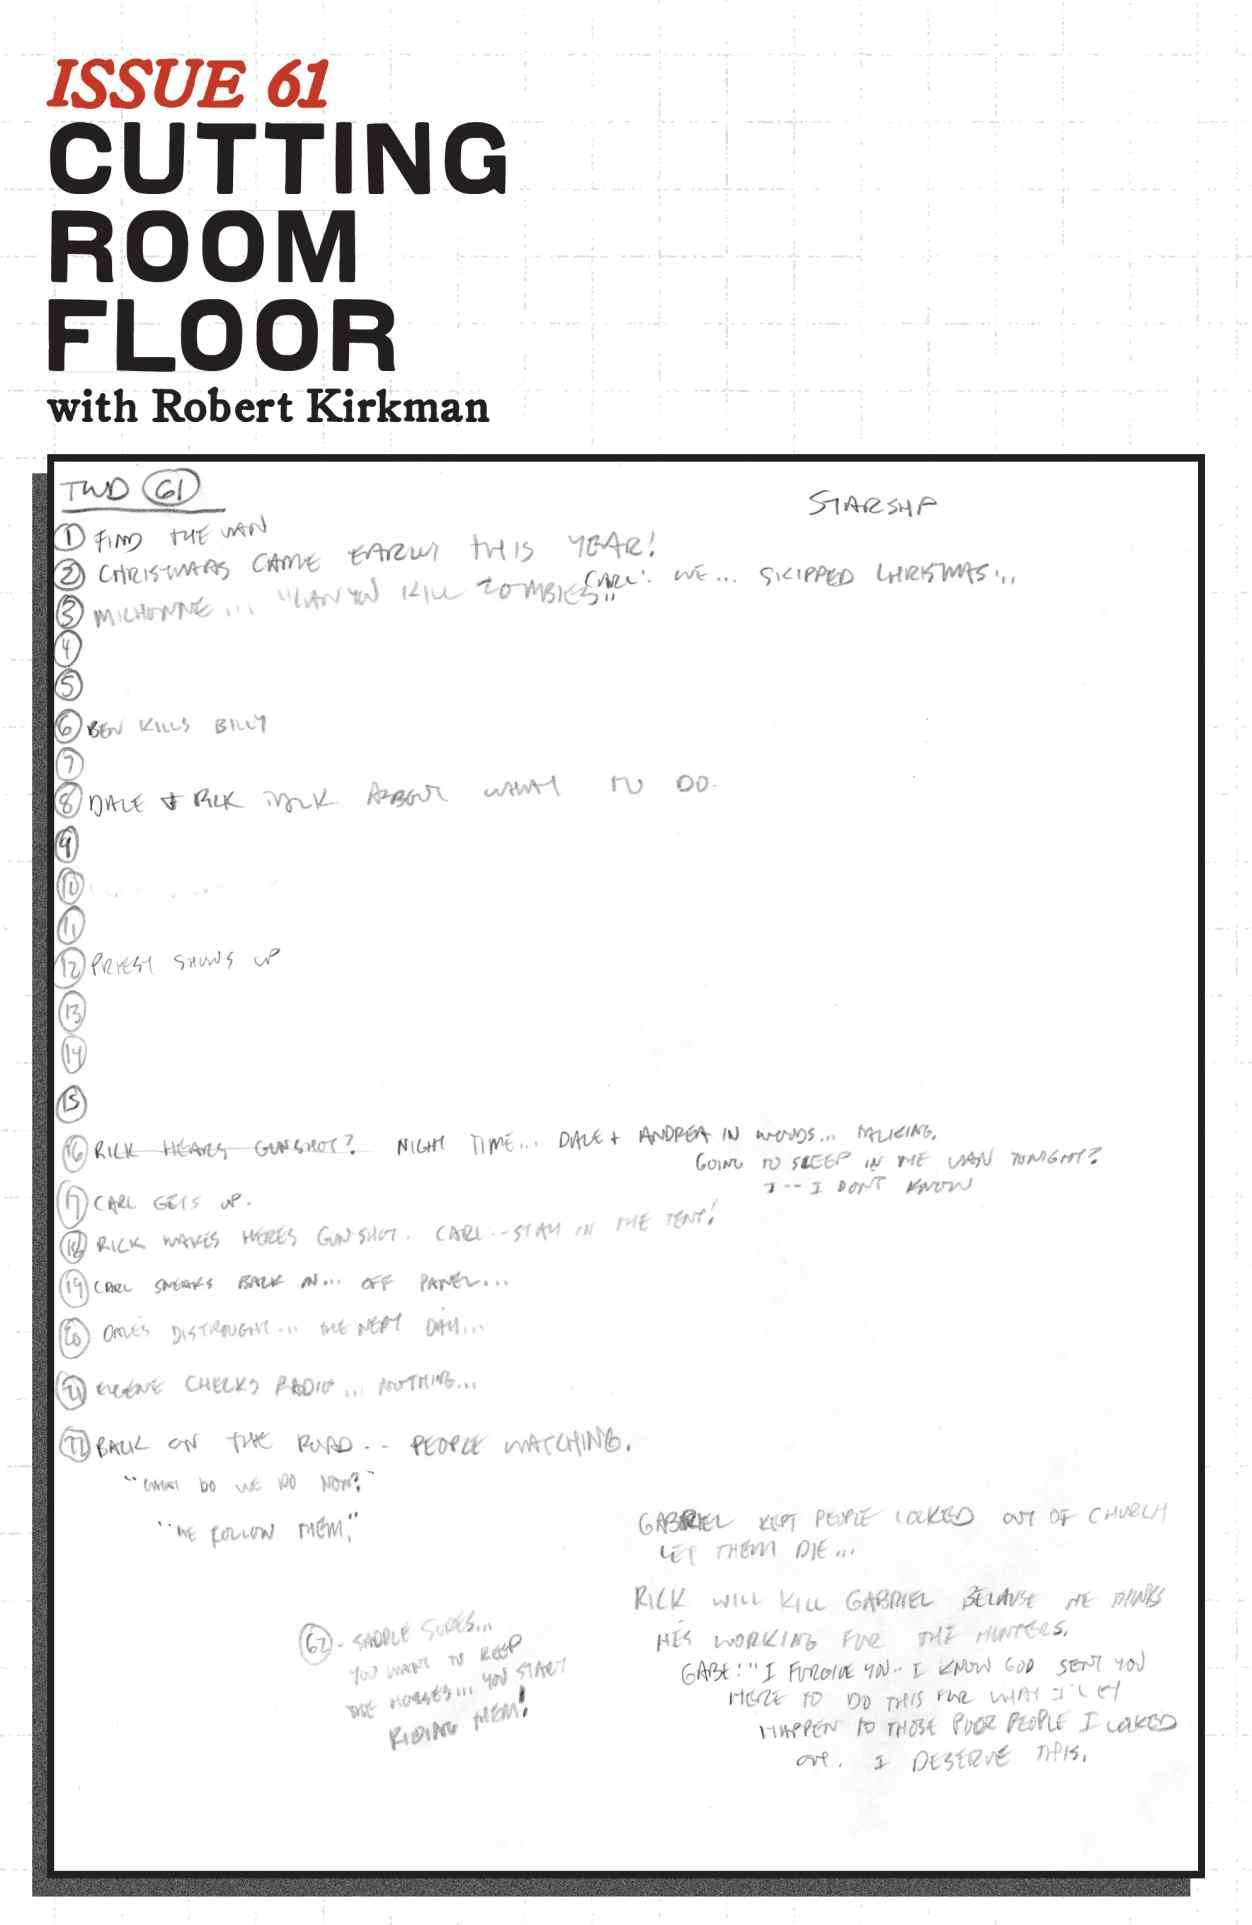 ISSUE 61
CUTTING
ROOM
FLOOR
with Robert Kirkman
TWD 61
STARSHIP
1 FIND THE VAN
2 CHRISTMAS CAME EARLY THIS YEAR!
CARL: WE... SKIPPED CHRISTMAS...
3 MICHONNE... "CAN YOU KILL ZOMBIES"
4
5
6 BEN KILLS BILLY
7
8 DALE & RICK TALK ABOUT WHAT TO DO.
9
10
11
12 PRIEST SHOWS UP
13
14
15
16 RICK HEARS GUNSHOT? NIGHT TIME... DALE + ANDREA IN WOODS... TALKING.
GOING TO SLEEP IN THE VAN TONIGHT?
I -- I DON'T KNOW
17 CARL GETS UP.
18 RICK WAKES HERES GUNSHOT. CARL -- STAY IN THE TENT!
19 CARL SNEAKS BACK IN... OFF PANEL...
20 DALE'S DISTRAUGHT... THE NEXT DAY...
21 EUGENE CHECKS RADIO... NOTHING...
22 BACK ON THE ROAD -- PEOPLE WATCHING.
"WHAT DO WE DO NOW?"
"WE FOLLOW THEM."
GABRIEL KEPT PEOPLE LOCKED OUT OF CHURCH
LET THEM DIE...
RICK WILL KILL GABRIEL BECAUSE HE THINKS
HE'S WORKING FOR THE HUNTERS.
GABE: "I FORGIVE YOU -- I KNOW GOD SENT YOU
HERE TO DO THIS FOR WHAT I LET
HAPPEN TO THOSE POOR PEOPLE I LOCKED
OUT. I DESERVE THIS.
62 - SADDLE SORES...
YOU WANT TO KEEP
THE HORSES... YOU START
RIDING THEM!